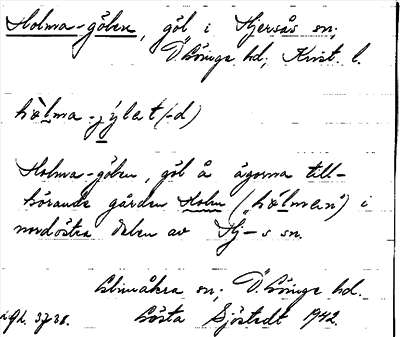 Holma-gölen, göl i Hjersås sn;
Ö. Göinge hd; Krist. l.
hòlma-jýlet (-d)
Holma-gölen, göl å ägorna till-
hörande gården Holm ("hólmen") i
nordöstra delen av Hj-s sn.
Glimåkra sn; Ö. Göinge hd.
Gösta Sjöstedt 1942.